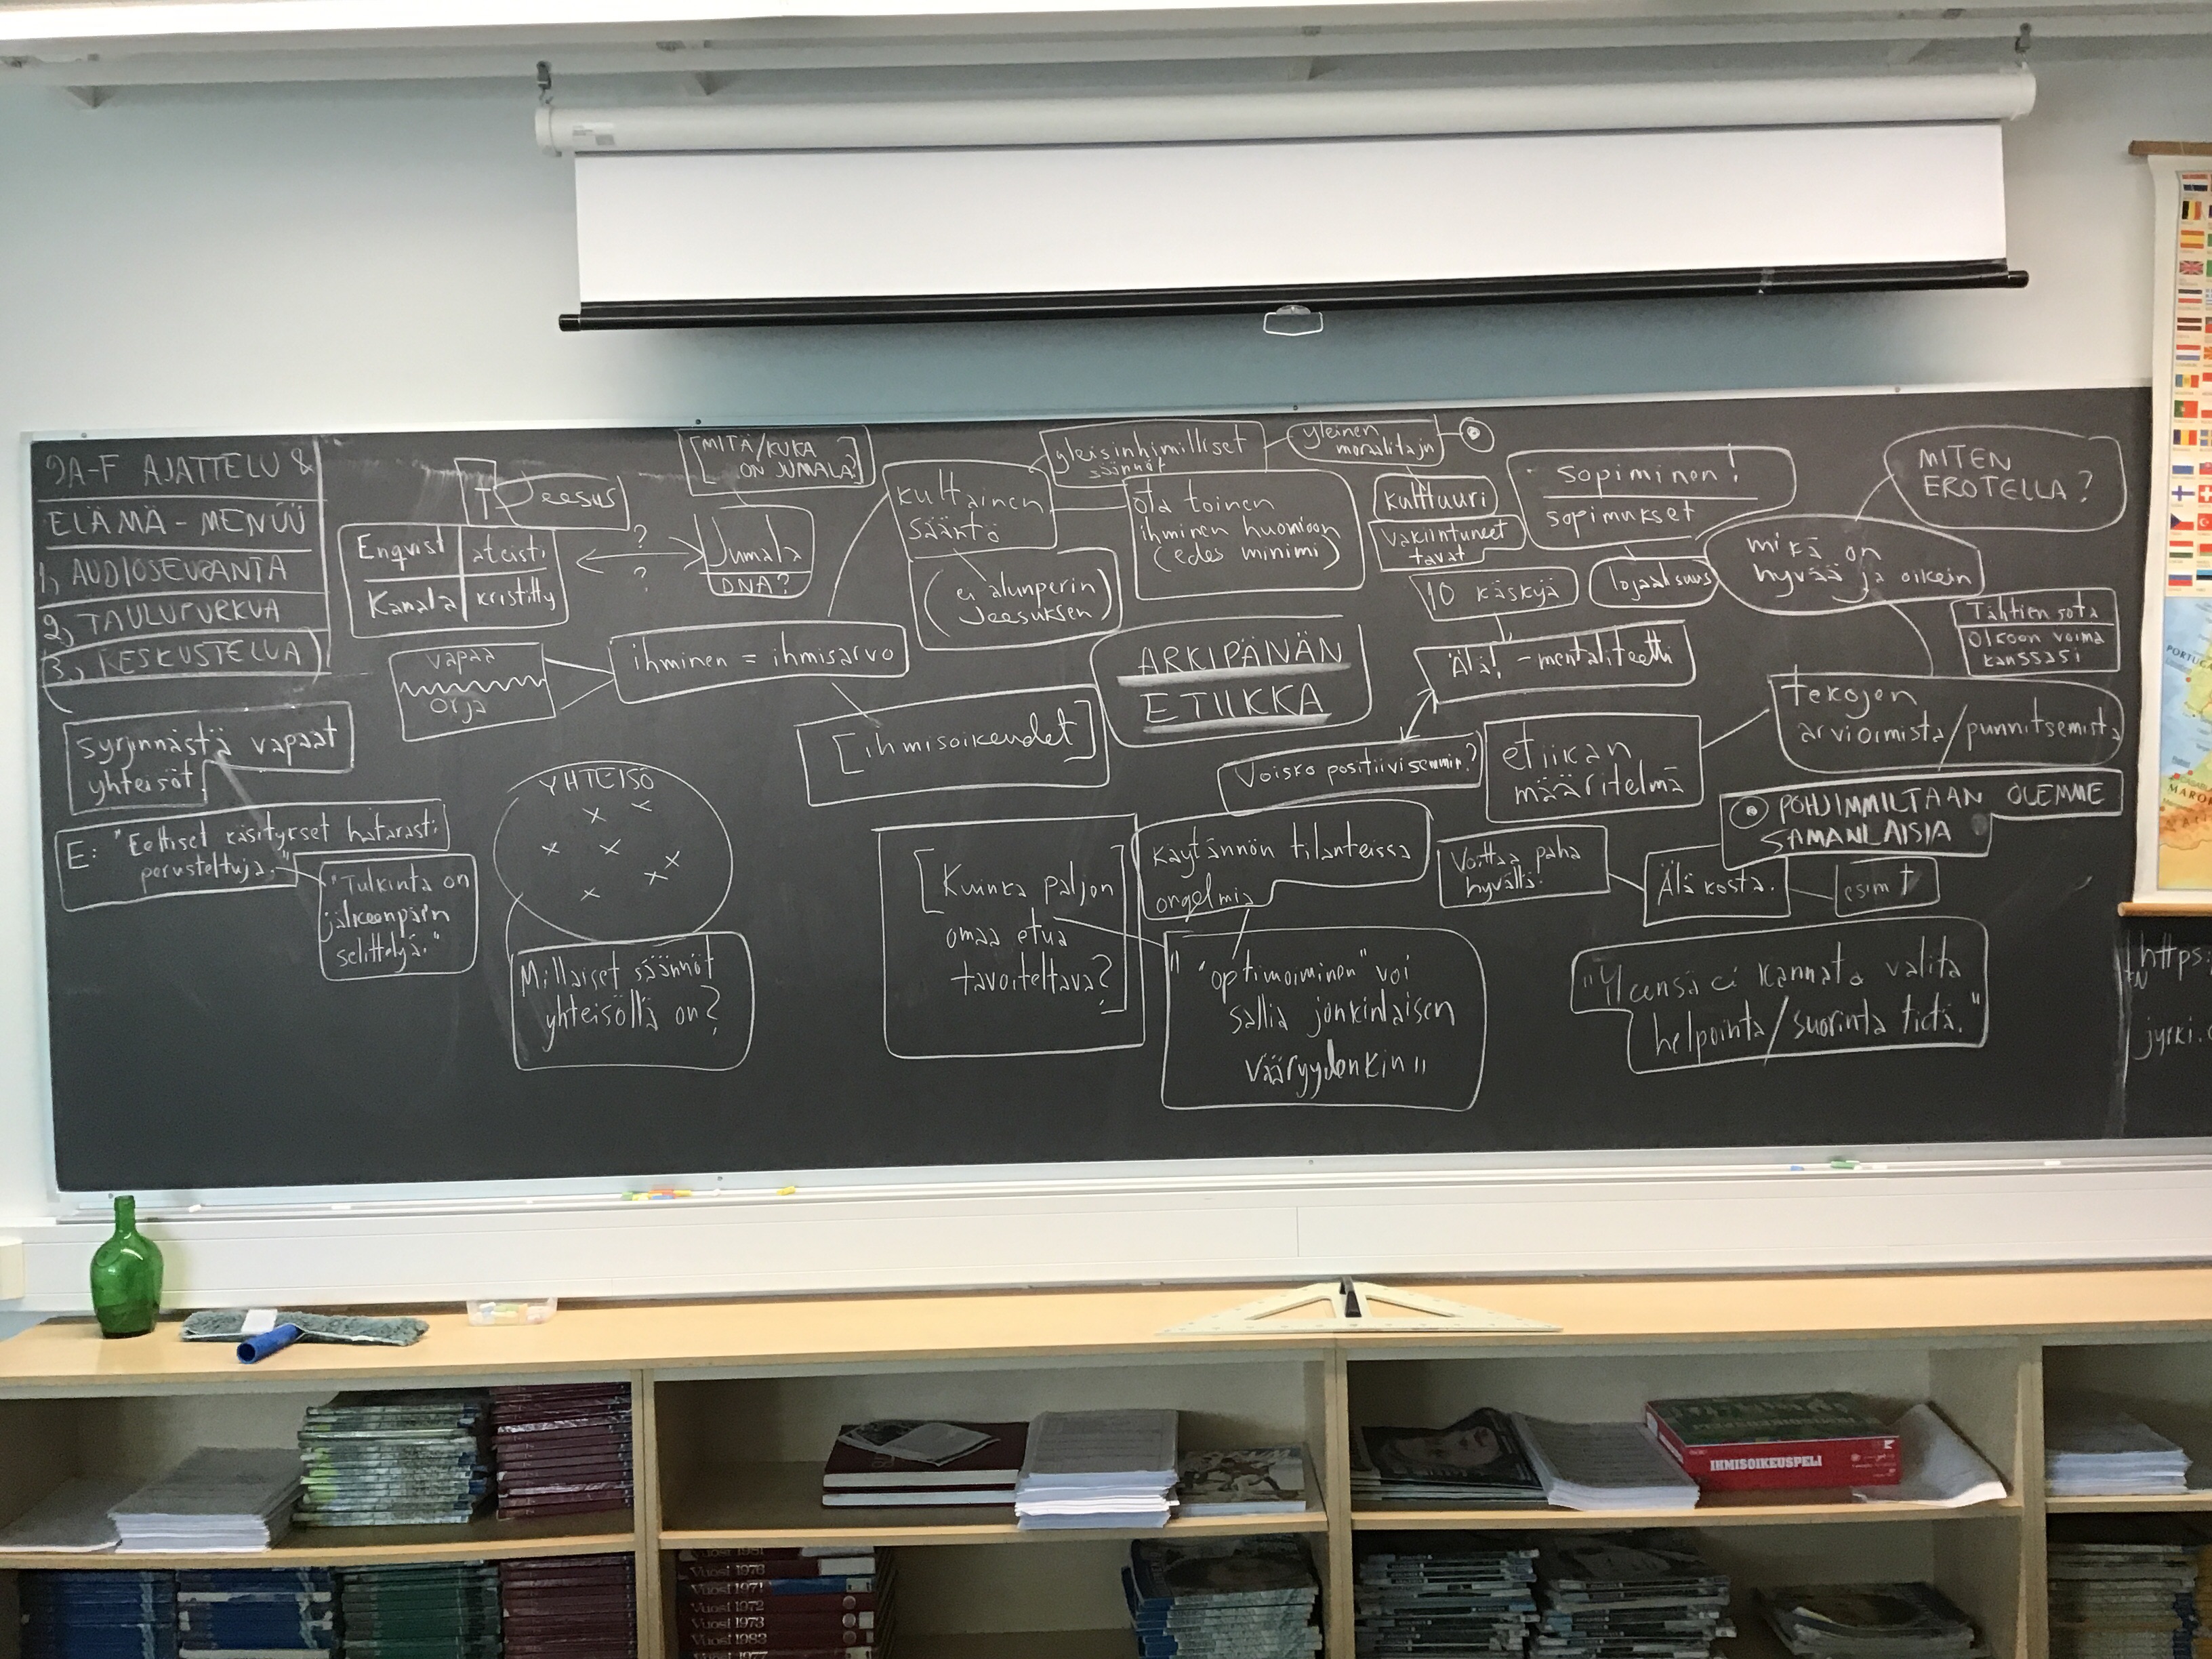 9A-F AJATTELU &
ELÄMÄ-MENÜÜ
1, AUDIOSEURANTA
2, TAULUPURKUA
3, KESKUSTELUA
Jeesus
Enqvist ateisti
Kanala kristitty
?
?
[MITÄ/KUKA
ON JUMALA?]
Jumala
DNA?
kultainen
sääntö
(ei alunperin
Jeesuksen)
yleisinhimilliset
säännöt
yleinen
moraalitaju
ota toinen
ihminen huomioon
(edes minimi)
kulttuuri
vakiintuneet
tavat
10 käskyä
sopiminen!
sopimukset
lojaalisuus
MITEN
EROTELLA?
mikä on
hyvää ja oikein
Tähtien sota
Olkoon voima
kanssasi
vapaa
orja
ihminen = ihmisarvo
[ihmisoikeudet]
ARKIPÄNÄN
ETIIKKA
Älä! -mentaliteetti
Voisko positiivisemmin?
etiikan
määritelmä
tekojen
arvioimista/punnitsemista
POHJIMMILTAAN OLEMME
SAMANLAISIA
syrjinnästä vapaat
yhteisöt
E: "Eettiset käsitykset hatarasti
perusteltuja."
"Tulkinta on
jälkeenpäin
selittelyä."
YHTEISÖ
Millaiset säännöt
yhteisöllä on?
[Kuinka paljon
omaa etua
tavoiteltava?]
käytännön tilanteissa
ongelmia
" "optimoiminen" voi
sallia jonkinlaisen
vääryydenkin "
Voittaa paha
hyvällä.
Älä kosta.
esim
"Yleensä ei kannata valita
helpointa/suorinta tietä."
https:
jyrki.
PORTUGA
IHMISOIKEUSPELI
Vuosi 1981
Vuosi 1976
Vuosi 1971
Vuosi 1972
Vuosi 1973
Vuosi 1983
Vuosi 1977